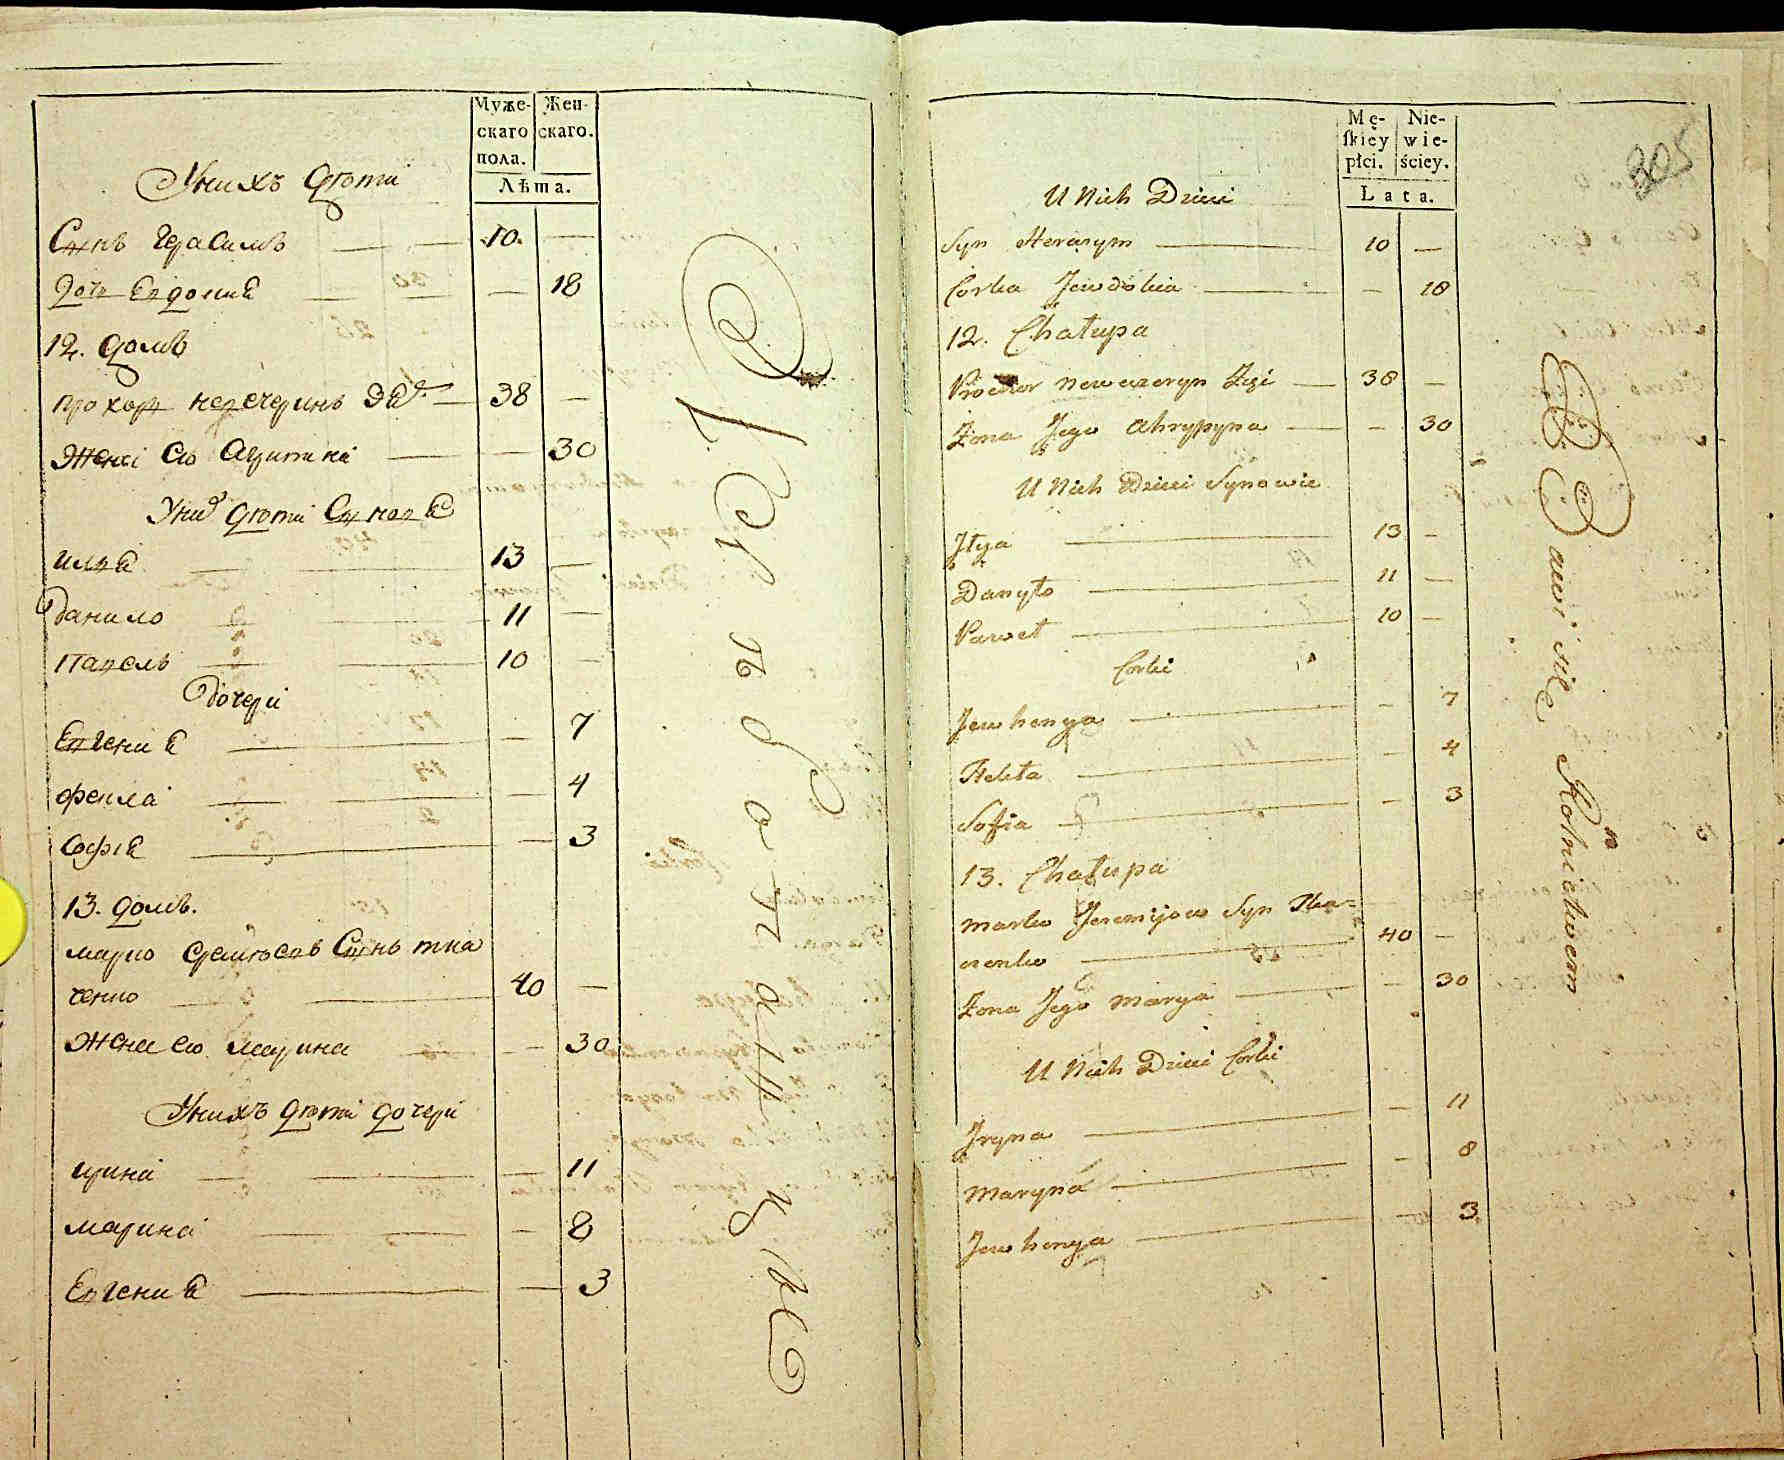 Муже- Жен-
скаго скаго.
пола.
Лѣта.
Унихъ Дѣти
Сынъ Герасимъ — 10. —
Дочь Евдокия — — 18
12. домъ
Прохор — 38 —
Жена его Агрипина — — 30
Уних Дѣти Сыновя
Илья — 13 —
Данило — 11 —
Павелъ — 10 —
Дочери
Евгения — — 7
Фекла — — 4
Софія — — 3
13. домъ.
Марко Еремѣевъ Сынъ Тка
ченко — 40 —
Жена его Марина — — 30
Унихъ Дѣти дочери
Ирина — — 11
Марина — — 8
Евгения — — 3
Mę- Nie-
ſkiey wie-
płci. ściey.
Lata.
305
U Nich Dzieci
Syn Herasym — 10 —
Corka Jewdokia — — 18
12. Chałupa
Prochor Neweczeryn — 38 —
Żona Jego Ahrypyna — — 30
U Nich Dzieci Synowie
Jłya — 13 —
Danyło — 11 —
Paweł — 10 —
Corki
Jewhenya — — 7
Tekla — — 4
Sofia — — 3
13. Chałupa
Marko Jeremijow Syn Tka=
czenko — 40 —
Żona Jego Marya — — 30
U Nich Dzieci Corki
Jryna — — 11
Maryna — — 8
Jewhenya — — 3
Bawi się Rolnictwem